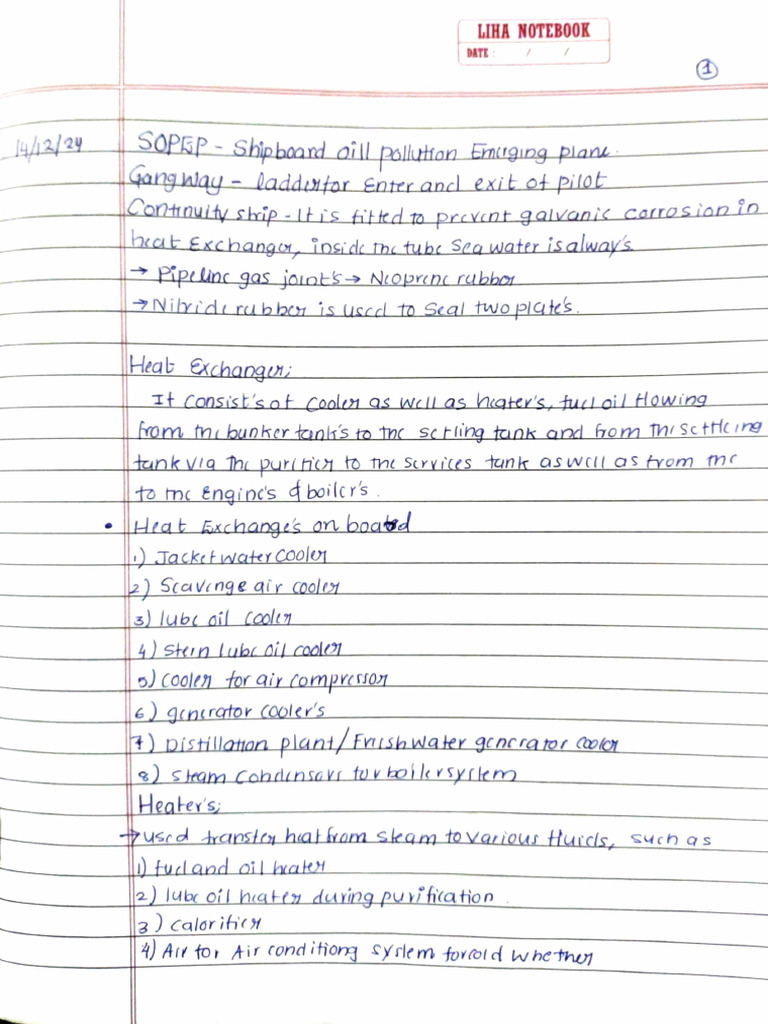 LIHA NOTEBOOK
DATE : / /
1
14/12/24
SOPEP - Shipboard oill pollution Emerging plane.
Gangway - ladder for Enter and exit of pilot
Continuity strip - It is fitted to prevent galvanic corrosion in
heat Exchanger, inside the tube Sea water is alway's.
→ Pipeline gas joint's → Neoprene rubber
→ Nitride rubber is used to Seal two plate's.
Heat Exchanger;
It consist's of cooler as well as heater's, fuel oil flowing
from the bunker tank's to the setling tank and from the settleing
tank via the purifier to the services tank as well as from the
to the Engine's & boiler's.
• Heat Exchange's on board
1) Jacket water cooler
2) Scavenge air cooler
3) lube oil cooler
4) Stern lube oil cooler
5) cooler for air compressor
6) generator cooler's
7) Distillation plant/Frishwater generator cooler
8) Steam Condensers for boiler system
Heater's;
→ used transfer heat from steam to various fluids, such as
1) fuel and oil heater
2) lube oil heater during purification.
3) calorifier
4) Air for Air conditiong system for cold whether